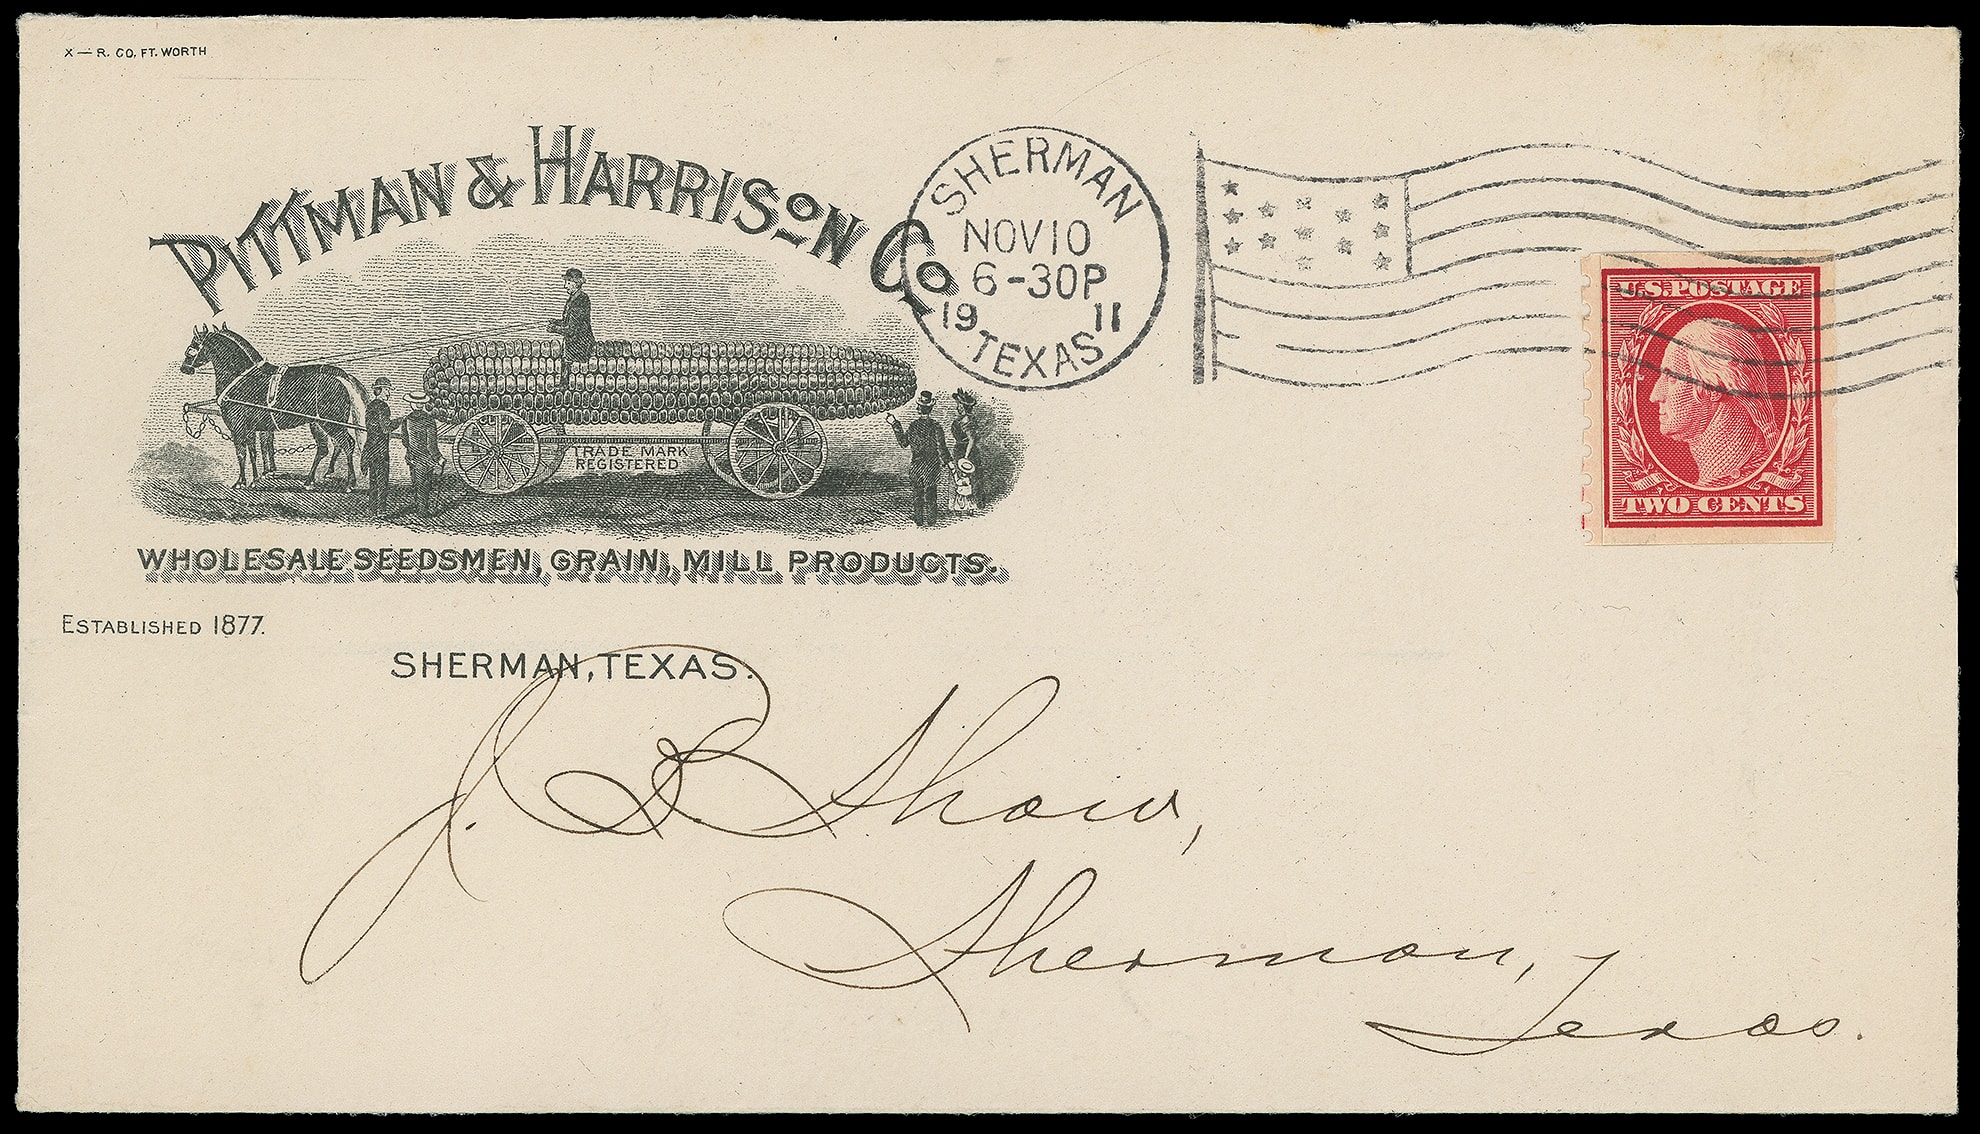 X — R. CO. FT. WORTH
PITTMAN & HARRISON CO
TRADE MARK
REGISTERED
WHOLESALE SEEDSMEN, GRAIN, MILL PRODUCTS.
ESTABLISHED 1877.
SHERMAN, TEXAS.
SHERMAN
NOV 10
6-30P
19 11
TEXAS
U.S. POSTAGE
TWO CENTS
J. B. Shaw,
Sherman,
Texas.